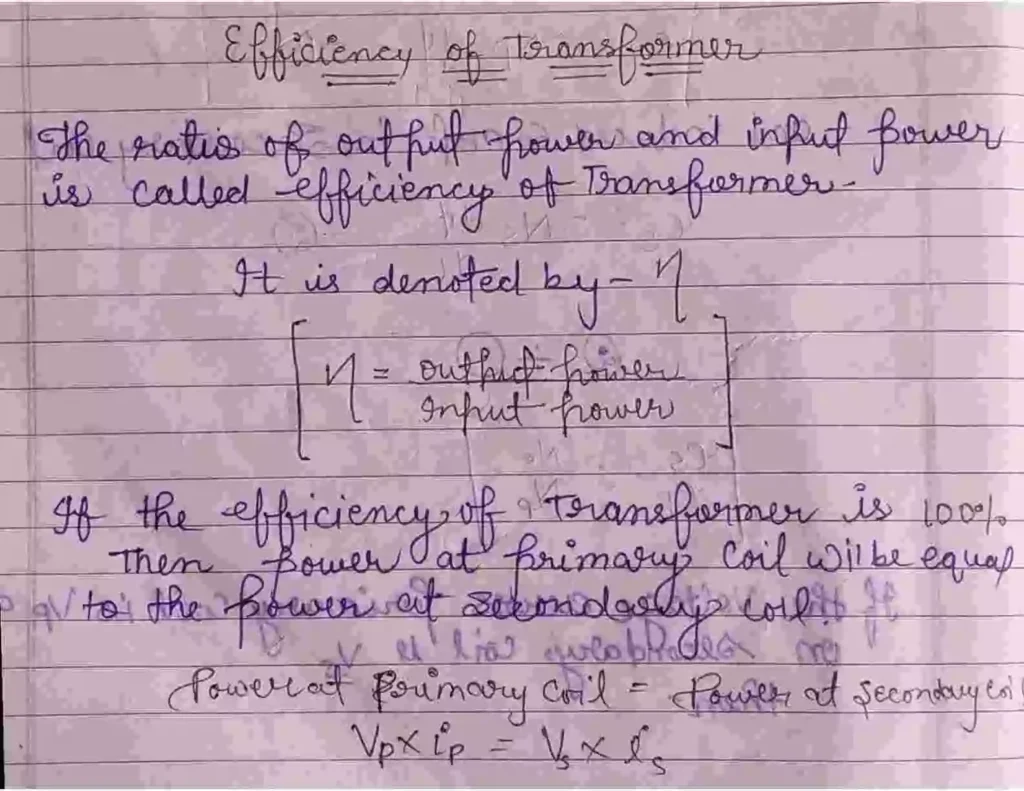 Efficiency of Transformer
The ratio of output power and input power
is called efficiency of Transformer.
It is denoted by - η
[η = output power
Input power]
If the efficiency of Transformer is 100%
Then power at primary coil wil be equal
to the power at secondary coil.
Power at primary coil = Power at secondary coil
Vp x ip = Vs x is